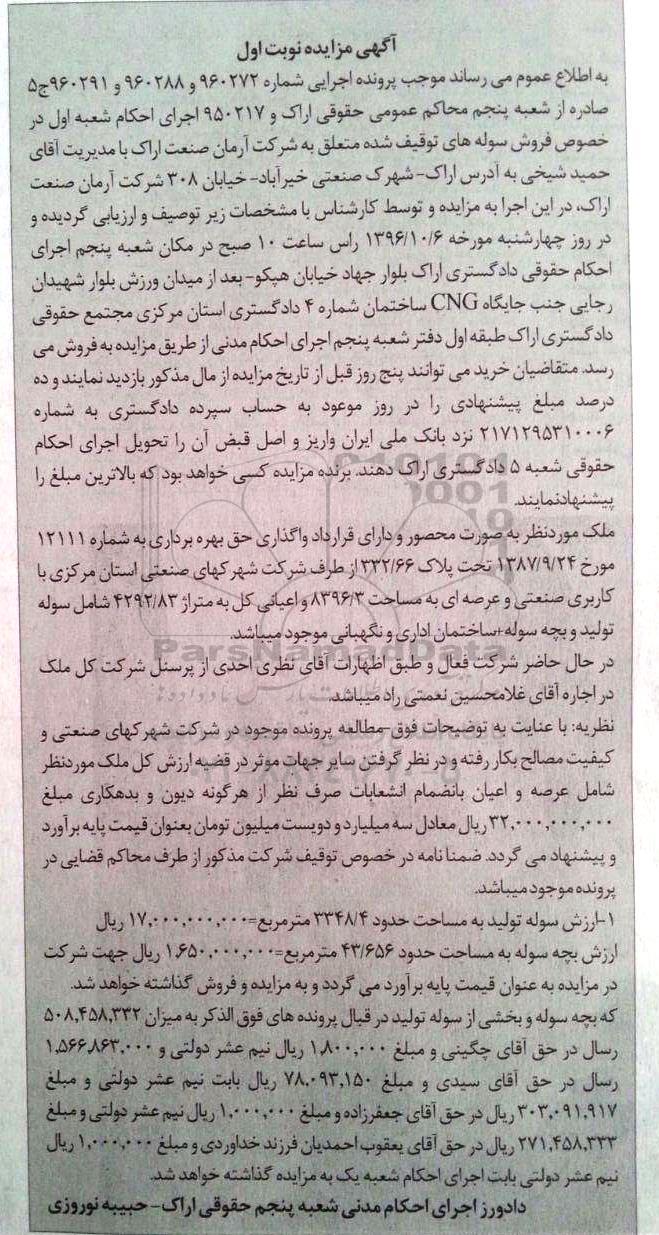 آگهی مزایده نوبت اول
به اطلاع عموم می رساند موجب پرونده اجرایی شماره ۹۶۰۲۷۲ و ۹۶۰۲۸۸ و ۹۶۰۲۹۱ج۵
صادره از شعبه پنجم محاکم عمومی حقوقی اراک و ۹۵۰۲۱۷ اجرای احکام شعبه اول در
خصوص فروش سوله های توقیف شده متعلق به شرکت آرمان صنعت اراک با مدیریت آقای
حمید شیخی به آدرس اراک- شهرک صنعتی خیرآباد- خیابان ۳۰۸ شرکت آرمان صنعت
اراک، در این اجرا به مزایده و توسط کارشناس با مشخصات زیر توصیف و ارزیابی گردیده و
در روز چهارشنبه مورخه ۱۳۹۶/۱۰/۶ راس ساعت ۱۰ صبح در مکان شعبه پنجم اجرای
احکام حقوقی دادگستری اراک بلوار جهاد خیابان هپکو- بعد از میدان ورزش بلوار شهیدان
رجایی جنب جایگاه CNG ساختمان شماره ۴ دادگستری استان مرکزی مجتمع حقوقی
دادگستری اراک طبقه اول دفتر شعبه پنجم اجرای احکام مدنی از طریق مزایده به فروش می
رسد. متقاضیان خرید می توانند پنج روز قبل از تاریخ مزایده از مال مذکور بازدید نمایند و ده
درصد مبلغ پیشنهادی را در روز موعود به حساب سپرده دادگستری به شماره
۲۱۷۱۲۹۵۳۱۰۰۰۶ نزد بانک ملی ایران واریز و اصل قبض آن را تحویل اجرای احکام
حقوقی شعبه ۵ دادگستری اراک دهند. برنده مزایده کسی خواهد بود که بالاترین مبلغ را
پیشنهادنمایند.
ملک موردنظر به صورت محصور و دارای قرارداد واگذاری حق بهره برداری به شماره ۱۲۱۱۱
مورخ ۱۳۸۷/۹/۲۴ تحت پلاک ۳۳۲/۶۶ از طرف شرکت شهرکهای صنعتی استان مرکزی با
کاربری صنعتی و عرصه ای به مساحت ۸۳۹۶/۳ و اعیانی کل به متراژ ۴۲۹۲/۸۳ شامل سوله
تولید و بچه سوله+ساختمان اداری و نگهبانی موجود میباشد.
ParsNamadData
در حال حاضر شرکت فعال و طبق اظهارات آقای نظری احدی از پرسنل شرکت کل ملک
در اجاره آقای غلامحسین نعمتی راد میباشد.
نظریه: با عنایت به توضیحات فوق-مطالعه پرونده موجود در شرکت شهرکهای صنعتی و
کیفیت مصالح بکار رفته و در نظر گرفتن سایر جهات موثر در قضیه ارزش کل ملک موردنظر
شامل عرصه و اعیان بانضمام انشعابات صرف نظر از هرگونه دیون و بدهکاری مبلغ
۳۲,۰۰۰,۰۰۰,۰۰۰ ریال معادل سه میلیارد و دویست میلیون تومان بعنوان قیمت پایه برآورد
و پیشنهاد می گردد. ضمنا نامه در خصوص توقیف شرکت مذکور از طرف محاکم قضایی در
پرونده موجود میباشد.
۱-ارزش سوله تولید به مساحت حدود ۳۳۴۸/۴ مترمربع=۱۷,۰۰۰,۰۰۰,۰۰۰ ریال
ارزش بچه سوله به مساحت حدود ۴۳/۶۵۶ مترمربع=۱,۶۵۰,۰۰۰,۰۰۰ ریال جهت شرکت
در مزایده به عنوان قیمت پایه برآورد می گردد و به مزایده و فروش گذاشته خواهد شد.
که بچه سوله و بخشی از سوله تولید در قبال پرونده های فوق الذکر به میزان ۵۰۸,۴۵۸,۳۳۲
رسال در حق آقای چگینی و مبلغ ۱,۸۰۰,۰۰۰ ریال نیم عشر دولتی و ۱,۵۶۶,۸۶۳,۰۰۰
رسال در حق آقای سیدی و مبلغ ۷۸,۰۹۳,۱۵۰ ریال بابت نیم عشر دولتی و مبلغ
۳۰۳,۰۹۱,۹۱۷ ریال در حق آقای جعفرزاده و مبلغ ۱,۰۰۰,۰۰۰ ریال نیم عشر دولتی و مبلغ
۲۷۱,۴۵۸,۳۳۳ ریال در حق آقای یعقوب احمدیان فرزند خداوردی و مبلغ ۱,۰۰۰,۰۰۰ ریال
نیم عشر دولتی بابت اجرای احکام شعبه یک به مزایده گذاشته خواهد شد.
دادورز اجرای احکام مدنی شعبه پنجم حقوقی اراک- حبیبه نوروزی